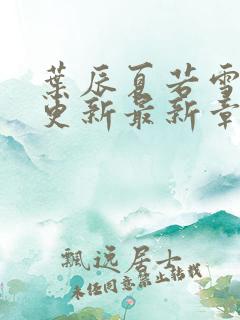 葉辰夏若雪
更新最新章
飄远居士
未经同意禁止转载